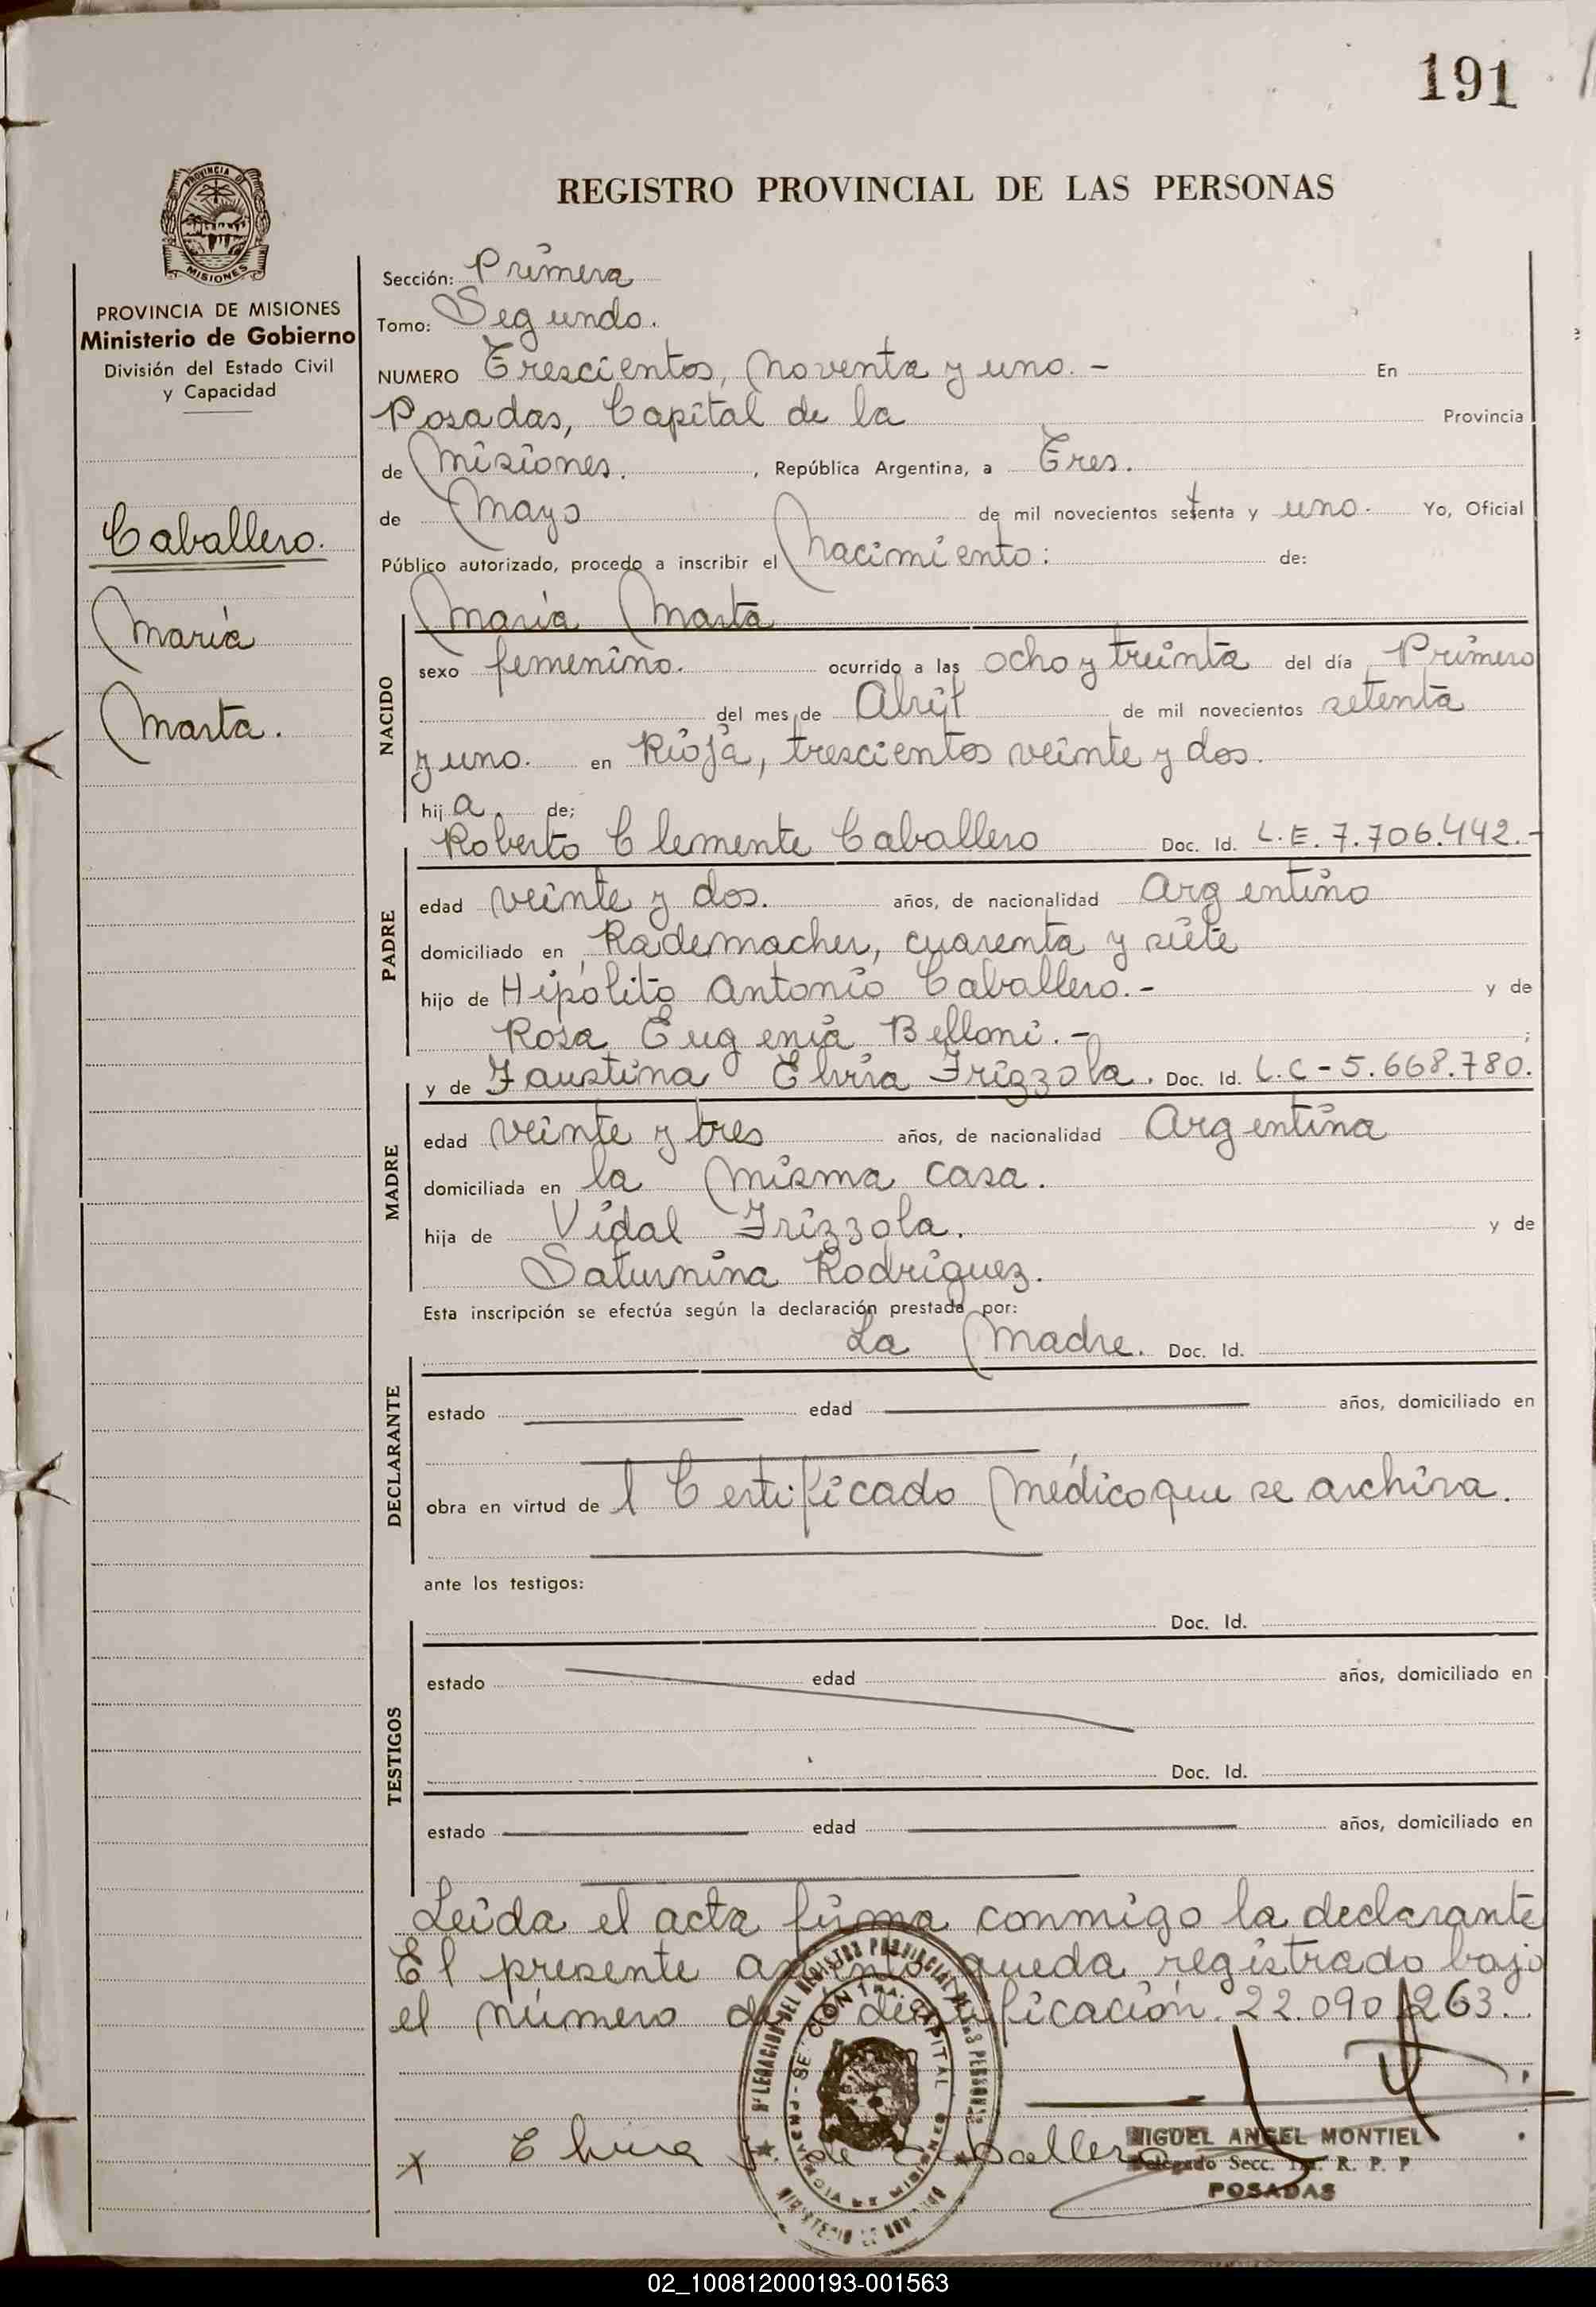 191
REGISTRO PROVINCIAL DE LAS PERSONAS
PROVINCIA DE
MISIONES
PROVINCIA DE MISIONES
Ministerio de Gobierno
División del Estado Civil
y Capacidad
Caballero.
María
Marta.
Sección: Primera
Tomo: Segundo.
NUMERO Trescientos, noventa y uno. - En
Posadas, Capital de la Provincia
de Misiones. , República Argentina, a Tres.
de Mayo de mil novecientos setenta y uno. Yo, Oficial
Público autorizado, procedo a inscribir el Nacimiento: de:
NACIDO
María Marta
sexo femenino. ocurrido a las ocho y treinta del día Primero
del mes de Abril de mil novecientos setenta
y uno. en Rioja, trescientos veinte y dos.
hija de;
PADRE
Roberto Clemente Caballero Doc. Id. L.E. 7.706.442.-
edad veinte y dos. años, de nacionalidad Argentino
domiciliado en Rademacher, cuarenta y siete
hijo de Hipólito Antonio Caballero.- y de
Rosa Eugenia Belloni.- ;
MADRE
y de Faustina Elvira Frizzola. Doc. Id. L.C-5.668.780.
edad veinte y tres años, de nacionalidad Argentina
domiciliada en la misma casa.
hija de Vidal Frizzola. y de
Saturnina Rodriguez.
Esta inscripción se efectúa según la declaración prestada por:
DECLARANTE
La Madre. Doc. Id.
estado edad años, domiciliado en
obra en virtud de l Certificado médico que se archiva.
ante los testigos:
TESTIGOS
Doc. Id.
estado edad años, domiciliado en
Doc. Id.
estado edad años, domiciliado en
Leída el acta firma conmigo la declarante
El presente asiento queda registrado bajo
el número de identificación. 22.090.263.
x Elvira F. de Caballero
MIGUEL ANGEL MONTIEL
Delegado Secc. 1ra. R. P. P
POSADAS
02_100812000193-001563